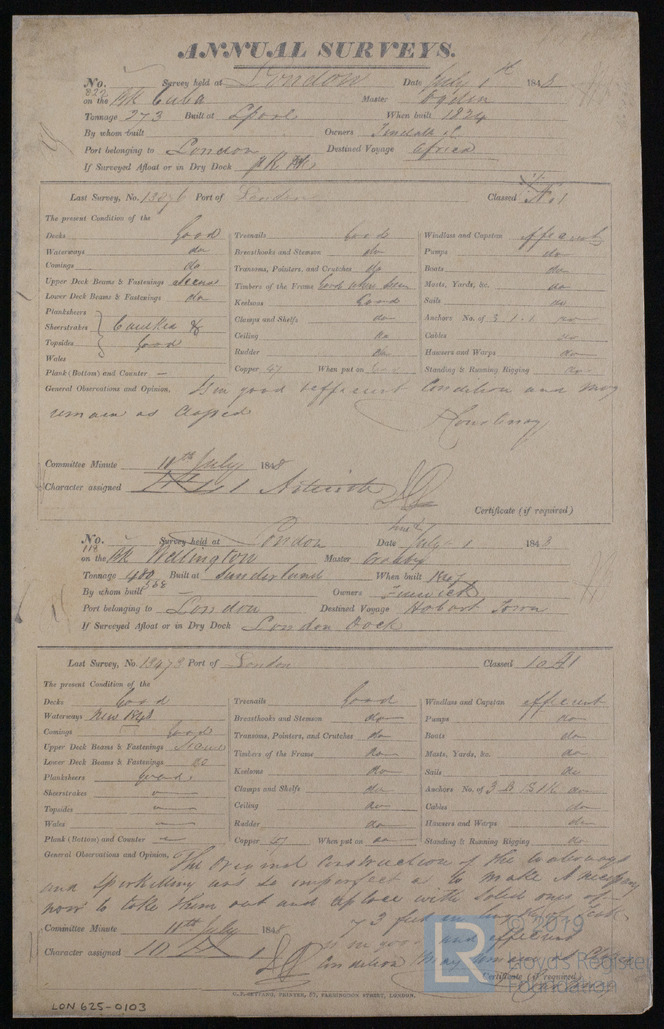 ANNUAL SURVEYS.
No. 822 Survey held at London Date July 1st 1848
on the Bk Cuba Master Ogden
Tonnage 273 Built at Lpool When built 1824
By whom built Owners
Port belonging to London Destined Voyage Africa
If Surveyed Afloat or in Dry Dock
Last Survey, No. 13876 Port of London Classed Æ 1
The present Condition of the
Decks Good Treenails Good Windlass and Capstan efficient
Waterways do Breasthooks and Stemson do Pumps do
Comings do Transoms, Pointers, and Crutches do Boats do
Upper Deck Beams & Fastenings Timbers of the Frame Good when seen Masts, Yards, &c. do
Lower Deck Beams & Fastenings do Keelsons Good Sails do
Planksheers Clamps and Shelfs do Anchors No. of 3. 1. 1 do
Sheerstrakes Caulked & Ceiling do Cables do
Topsides Good Rudder do Hawsers and Warps do
Wales Copper 47 When put on Standing & Running Rigging do
Plank (Bottom) and Counter —
General Observations and Opinion, Is in good & efficient Condition and may
remain as Classed
Courtenay
Committee Minute 11th July 1848
Character assigned
Certificate (if required)
No. 118 Survey held at London Date July 1 1848
on the Bk Wellington Master Crosby
Tonnage 480 Built at Sunderland When built
568
By whom built — Owners Fenwick
Port belonging to London Destined Voyage Hobart Town
If Surveyed Afloat or in Dry Dock London Dock
Last Survey, No. 13473 Port of London Classed 10 A1
The present Condition of the
Decks Good Treenails Good Windlass and Capstan efficient
Waterways New 1848 Breasthooks and Stemson do Pumps do
Comings Good Transoms, Pointers, and Crutches do Boats do
Upper Deck Beams & Fastenings Timbers of the Frame do Masts, Yards, &c. do
Lower Deck Beams & Fastenings do Keelsons do Sails do
Planksheers good Clamps and Shelfs do Anchors No. of 3 do
Sheerstrakes — Ceiling do Cables do
Topsides — Rudder do Hawsers and Warps do
Wales — Copper 47 When put on Standing & Running Rigging do
Plank (Bottom) and Counter —
General Observations and Opinion, The Original Construction of the Waterways
and Spirketting was so imperfect as to make it necessary
now to take them out and replace with Solid ones of
Committee Minute 11th July 1848 7 3 feet in
Character assigned 10 A 1 is in good and efficient
Condition May remain as Classed
Certificate (if required)
PRINTER, FARRINGDON STREET, LONDON.
LON 625-0103
© 2019
LR
Lloyd's Register
Foundation